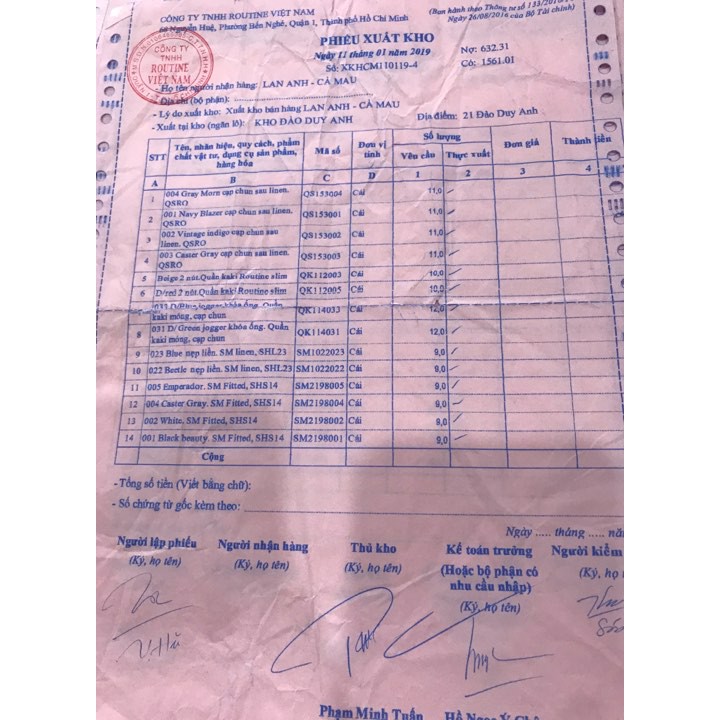 CÔNG TY TNHH ROUTINE VIỆT NAM
Nguyễn Huệ, Phường Bến Nghé, Quận 1, Thành phố Hồ Chí Minh
(Ban hành theo Thông tư số 133/2016
Ngày 26/08/2016 của Bộ Tài chính)
CÔNG TY
TNHH
ROUTINE
VIỆT NAM
PHIẾU XUẤT KHO
Ngày 11 tháng 01 năm 2019
Số: XKHCM110119-4
Nợ: 632.31
Có: 1561.01
- Họ tên người nhận hàng: LAN ANH - CÀ MAU
- Địa chỉ (bộ phận):
- Lý do xuất kho: Xuất kho bán hàng LAN ANH - CÀ MAU
- Xuất tại kho (ngăn lô): KHO ĐÀO DUY ANH
Địa điểm: 21 Đào Duy Anh
STT Tên, nhãn hiệu, quy cách, phẩm chất vật tư, dụng cụ sản phẩm, hàng hóa Mã số Đơn vị tính Số lượng Đơn giá Thành tiền
Yêu cầu Thực xuất
A B C D 1 2 3 4
1 004 Gray Morn cạp chun sau linen. QSRO QS153004 Cái 11,0
2 001 Navy Blazer cạp chun sau linen. QSRO QS153001 Cái 11,0
3 002 Vintage indigo cạp chun sau linen. QSRO QS153002 Cái 11,0
4 003 Caster Gray cạp chun sau linen. QSRO QS153003 Cái 11,0
5 Beige 2 nút.Quần kaki Routine slim QK112003 Cái 10,0
6 D/red 2 nút.Quần kaki Routine slim QK112005 Cái 10,0
jogger khóa ống. Quần kaki mỏng, cạp chun QK114033 Cái 12,0
8 031 D/ Green jogger khóa ống. Quần kaki mỏng, cạp chun QK114031 Cái 12,0
9 023 Blue nẹp liền. SM linen, SHL23 SM1022023 Cái 9,0
10 022 Beetle nẹp liền. SM linen, SHL23 SM1022022 Cái 9,0
11 005 Emperador. SM Fitted, SHS14 SM2198005 Cái 9,0
12 004 Caster Gray. SM Fitted, SHS14 SM2198004 Cái 9,0
13 002 White. SM Fitted, SHS14 SM2198002 Cái 9,0
14 001 Black beauty. SM Fitted, SHS14 SM2198001 Cái 9,0
Cộng
- Tổng số tiền (Viết bằng chữ):
- Số chứng từ gốc kèm theo:
Ngày ..... tháng ..... nă
Người lập phiếu Người nhận hàng Thủ kho Kế toán trưởng Người kiểm
(Ký, họ tên) (Ký, họ tên) (Ký, họ tên) (Hoặc bộ phận có (Ký, họ t
nhu cầu nhập)
(Ký, họ tên)
Phạm Minh Tuấn